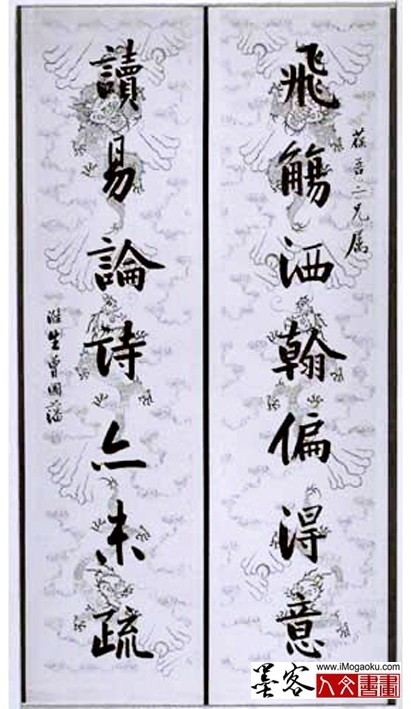 葆吾二兄属
飛觴洒翰偏得意
讀易論詩亦未疏
滌生曾國藩
墨客
www.iMogaoku.com
人文書畫